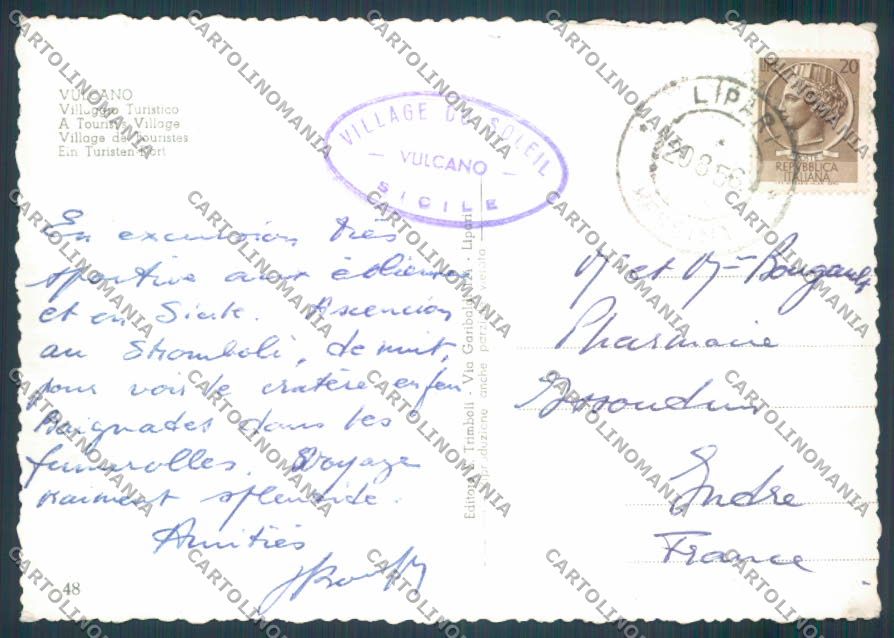 VULCANO
Villaggio Turistico
A Touristys Village
Village des Touristes
Ein Turisten-Hort
VILLAGE DU SOLEIL
VULCANO
SICILE
LIPARI
20
POSTE
REPVBBLICA
ITALIANA
En excursion très
sportive aux éoliennes
et en Sicile. Ascencion
au Stromboli, de nuit,
pour voir le cratère en feu
Baignades dans les
fumerolles. Voyage
vraiment splendide.
Amitiés
48
Editore E. Trimboli - Via Garibaldi - Lipari
riproduzione anche parziale vietata
Mr et Mme Bougault
Pharmacie
Issoudun
Indre
France
CARTOLINOMANIA